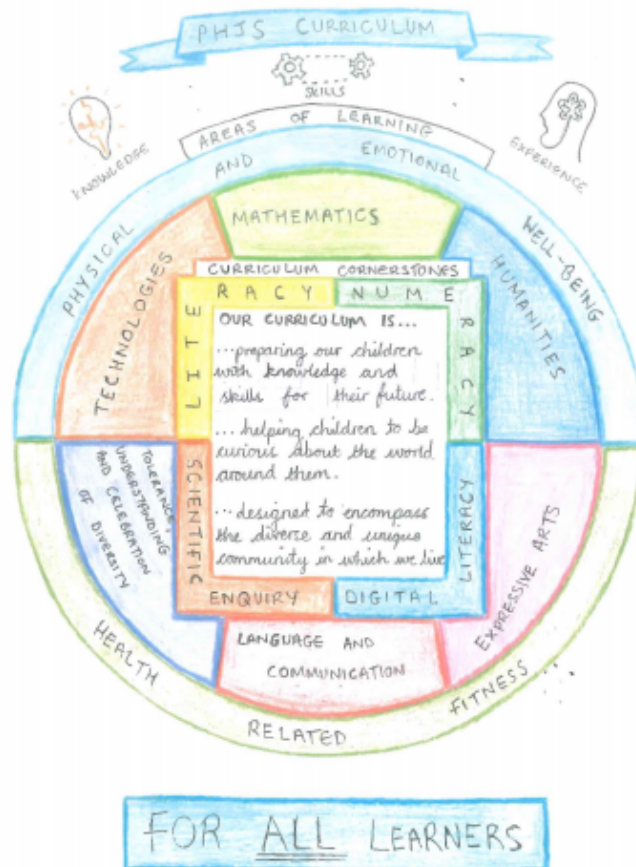 PHJS CURRICULUM
SKILLS
KNOWLEDGE
EXPERIENCE
AREAS OF LEARNING
PHYSICAL AND EMOTIONAL WELL-BEING
MATHEMATICS
TECHNOLOGIES
HUMANITIES
CURRICULUM CORNERSTONES
LITERACY
NUMERACY
OUR CURRICULUM IS...
...preparing our children
with knowledge and
skills for their future.
...helping children to be
curious about the world
around them.
...designed to encompass
the diverse and unique
community in which we live
SCIENTIFIC ENQUIRY
DIGITAL LITERACY
TOLERANCE,
UNDERSTANDING
AND CELEBRATION
OF DIVERSITY
EXPRESSIVE ARTS
LANGUAGE AND
COMMUNICATION
HEALTH RELATED FITNESS
FOR ALL LEARNERS